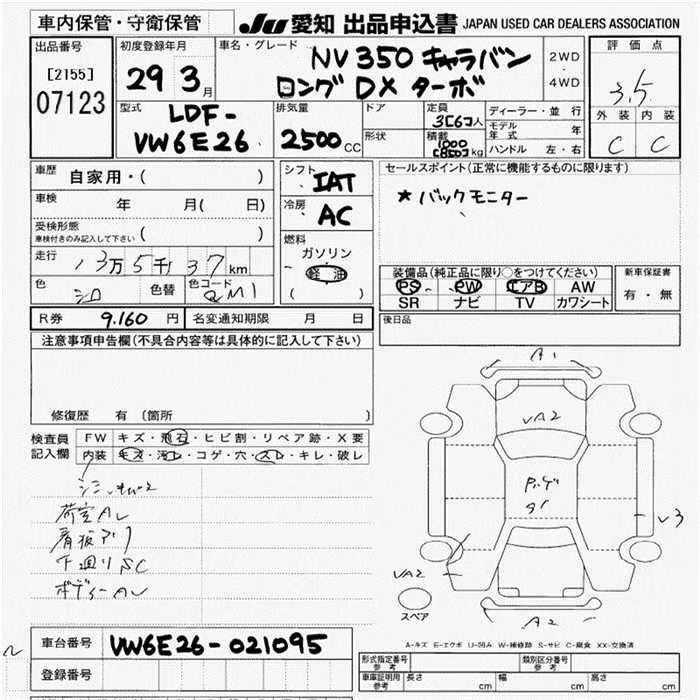 車内保管・守衛保管
JU 愛知 出品申込書 JAPAN USED CAR DEALERS ASSOCIATION
出品番号
[2155]
07123
初度登録年月
29 3月
車名・グレード
NV350 キャラバン
ロング DX ターボ
2WD
・
4WD
評価点
3.5
外装 内装
C C
型式
LDF-
VW6E26
排気量
2500 CC
ドア
形状
定員
3[6]人
積載
1000
[850] kg
ディーラー・並行
モデル年式 年
ハンドル 左・右
車歴
自家用・( )
車検 年 月( 日)
受検形態
車検付きのみ記入して下さい ( )
走行 13万5千137km
色 シロ 色替 色コード QM1
シフト IAT
冷房 AC
燃料
ガソリン
軽油
( )
セールスポイント(正常に機能するものに限ります)
★バックモニター
装備品(純正品に限り○をつけてください)
PS PW エアB AW
SR ナビ TV カワシート
新車保証書
有・無
R券 9.160 円 名変通知期限 月 日
後日品
注意事項申告欄(不具合内容等は具体的に記入して下さい)
修復歴 有(箇所 )
検査員
記入欄
FW キズ・飛石・ヒビ割・リペア跡・X要
内装 キズ・汚レ・コゲ・穴・スレ・キレ・破レ
荷室AL
看板アリ
下廻りSC
ボディーAL
A1
VA2
V3
VA2
A2
スペア
A-キズ E-エクボ U-凹み W-補修跡 S-サビ C-腐食 XX-交換済
車台番号 VW6E26-021095
登録番号
形式指定番号
参考
類別区分番号
参考
車庫証明用
参考
長さ cm 幅 cm 高さ cm